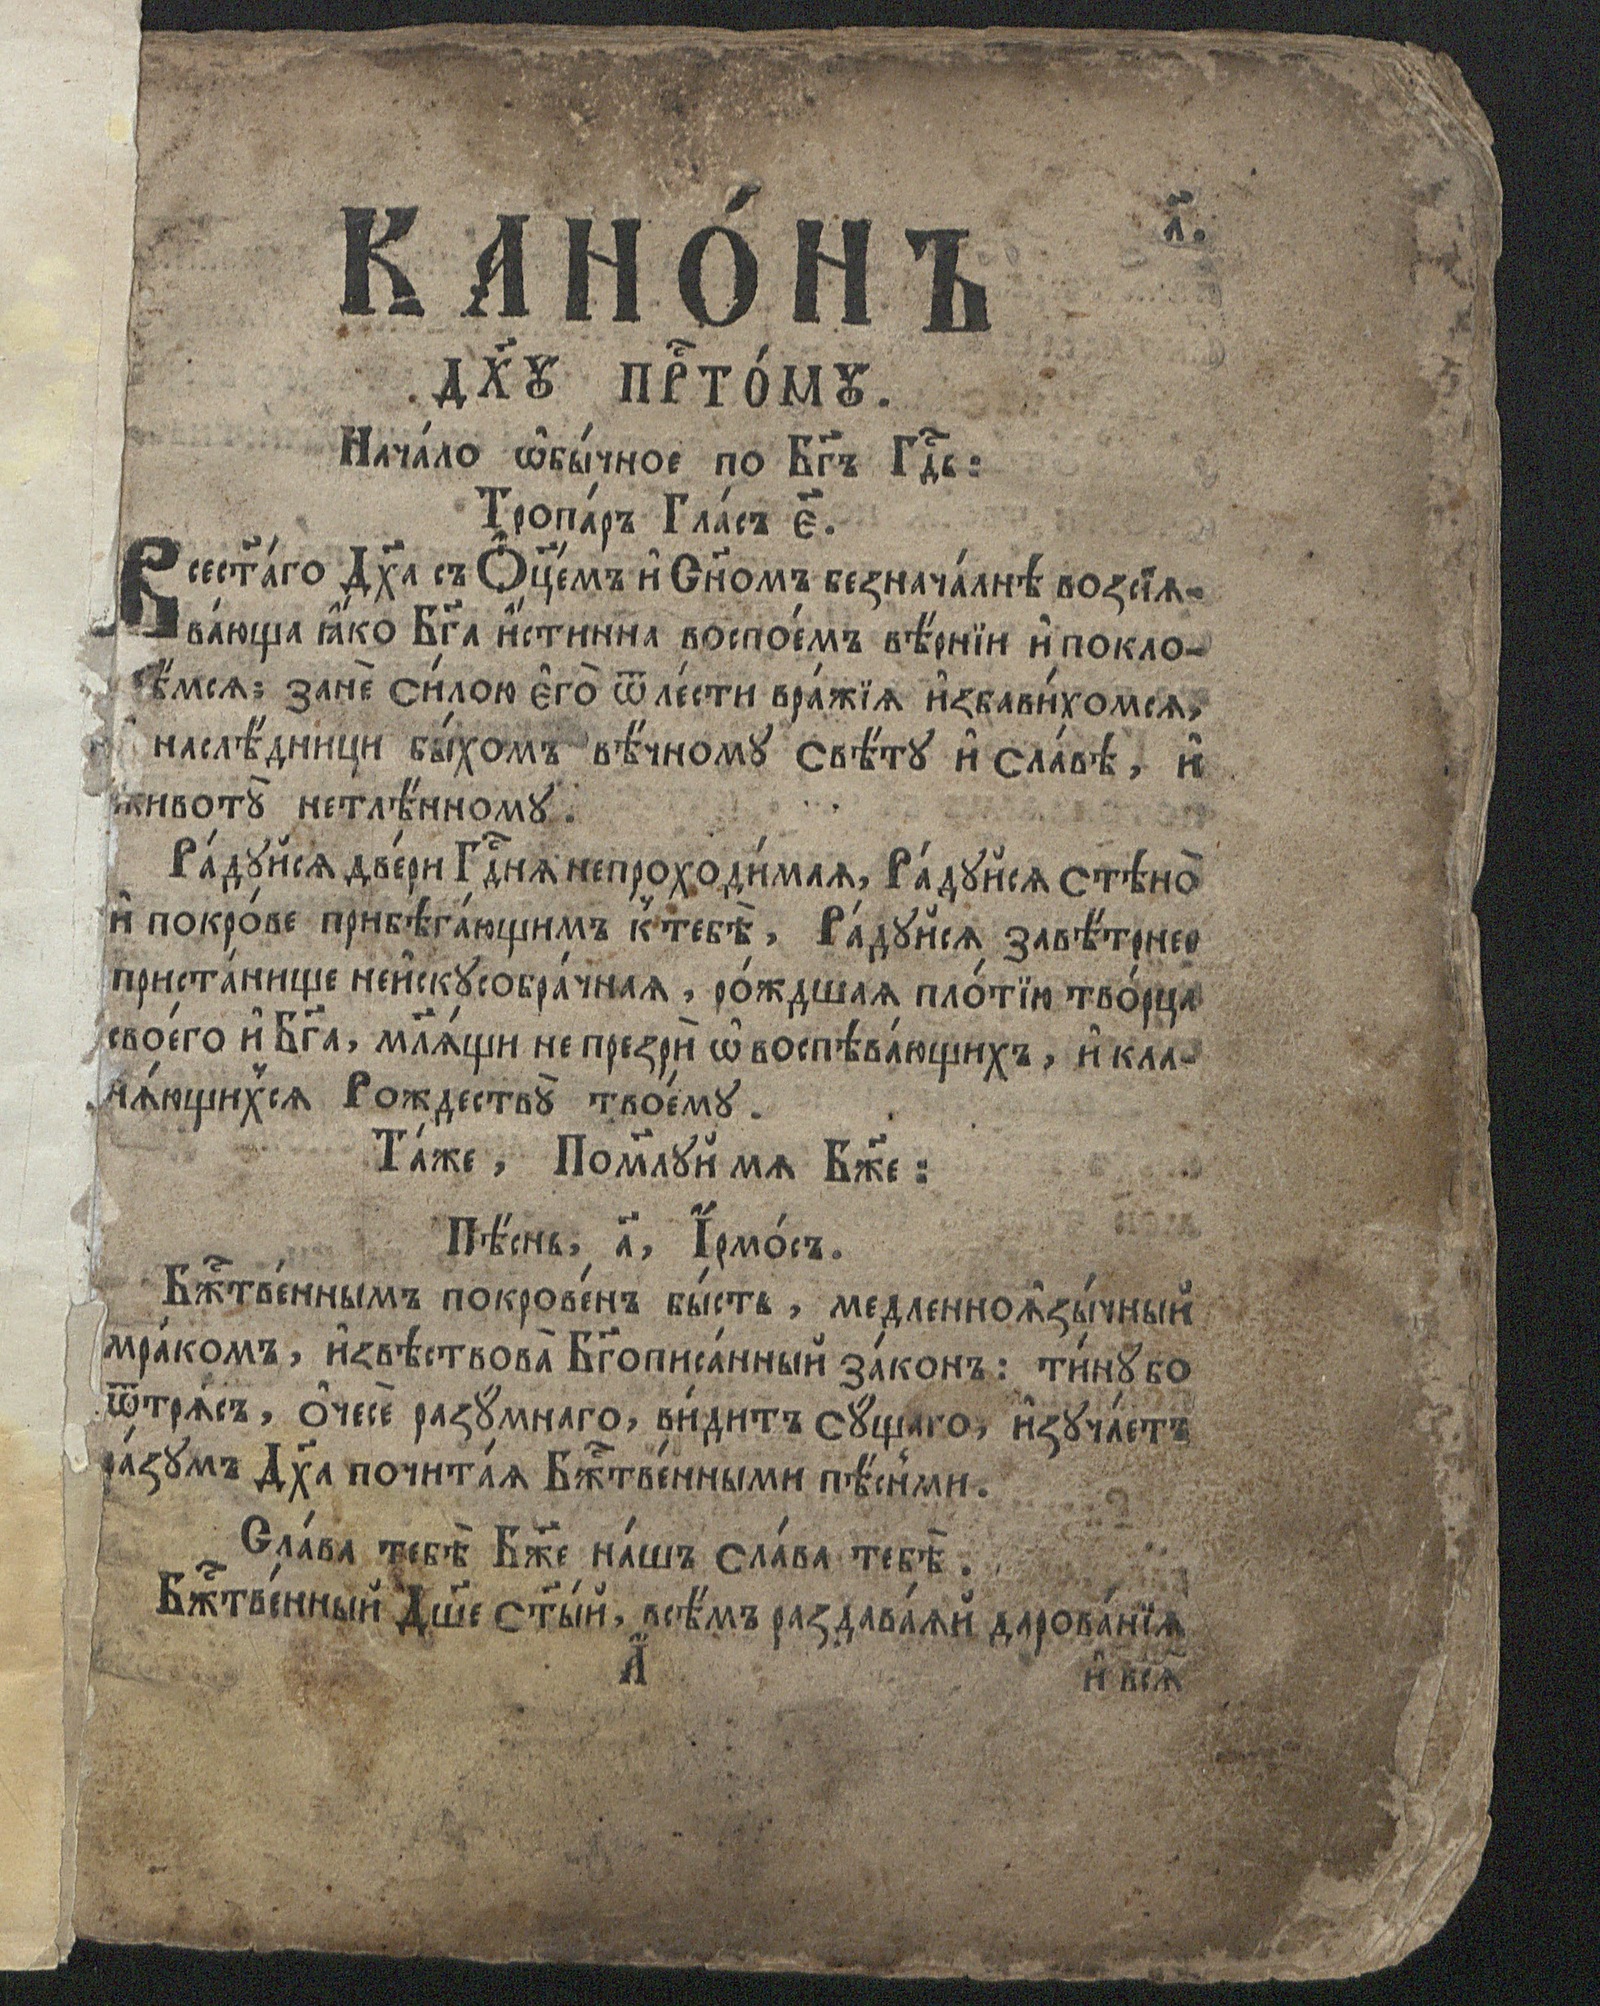 а҃.
КАНО́НЪ
ДХ҃Ꙋ ПРⷭ҇ТО́МꙊ.
Нача́ло ѡ҆бы́чное по Бг҃ъ Гдⷭ҇ь:
Тропа́рь Гла́съ є҃.
Всест҃а́го Дх҃а съ Ѻ҆ц҃е́мъ и҆ Сн҃омъ безнача́лнѣ возсїѧ-
ва́юща ꙗ҆́ко Бг҃а и҆́стинна воспое́мъ вѣ́рнїи и҆ покло-
ѣ́мсѧ: занѐ си́лою є҆гѡ̀ ѿ ле́сти вра́жїѧ и҆збави́хомсѧ,
наслѣ́дници бы́хомъ вѣ́чному свѣ́ту и҆ сла́вѣ, и҆
животꙋ̀ нетлѣ́нному.
Ра́дꙋйсѧ две́ри Гдⷭ҇нѧ непроходи́маѧ, Ра́дꙋйсѧ стѣно̀
и҆ покро́ве прибѣга́ющимъ к̾ тебѣ̀, Ра́дꙋйсѧ завѣ́трнео
приста́нище неи҆скꙋсобра́чнаѧ, ро́ждшаѧ пло́тїю тво́рца
своего̀ и҆ Бг҃а, мл҃ѧ́щи не презрѝ ѡ҆ воспѣва́ющихъ, и҆ кла-
нѧ́ющихсѧ Рождествꙋ̀ твоемꙋ̀.
Та́же, Помл҃ꙋй мѧ Бж҃е:
Пѣ́снь, а҃, І҆рмо́съ.
Бжⷭ҇тве́ннымъ покрове́нъ бы́сть, медленноѧ҆зы́чный
мра́комъ, и҆звѣ́ствова Бг҃описа́нный за́конъ: ти́нꙋ бо
ѿтрѧ́съ, ѻ҆чесѐ разꙋ́мнаго, ви́дитъ сꙋ́щаго, и҆зꙋча́етъ
ра́зꙋмъ Дх҃а почита́ѧ Бжⷭ҇тве́нными пѣ́сн̾ми.
Сла́ва тебѣ̀ Бж҃е на́шъ сла́ва тебѣ̀.
Бжⷭ҇тве́нный Дш҃е ст҃ы́й, всѣ́мъ раздава́ѧй дарова́нїѧ
А҃
и҆ всѧ̑